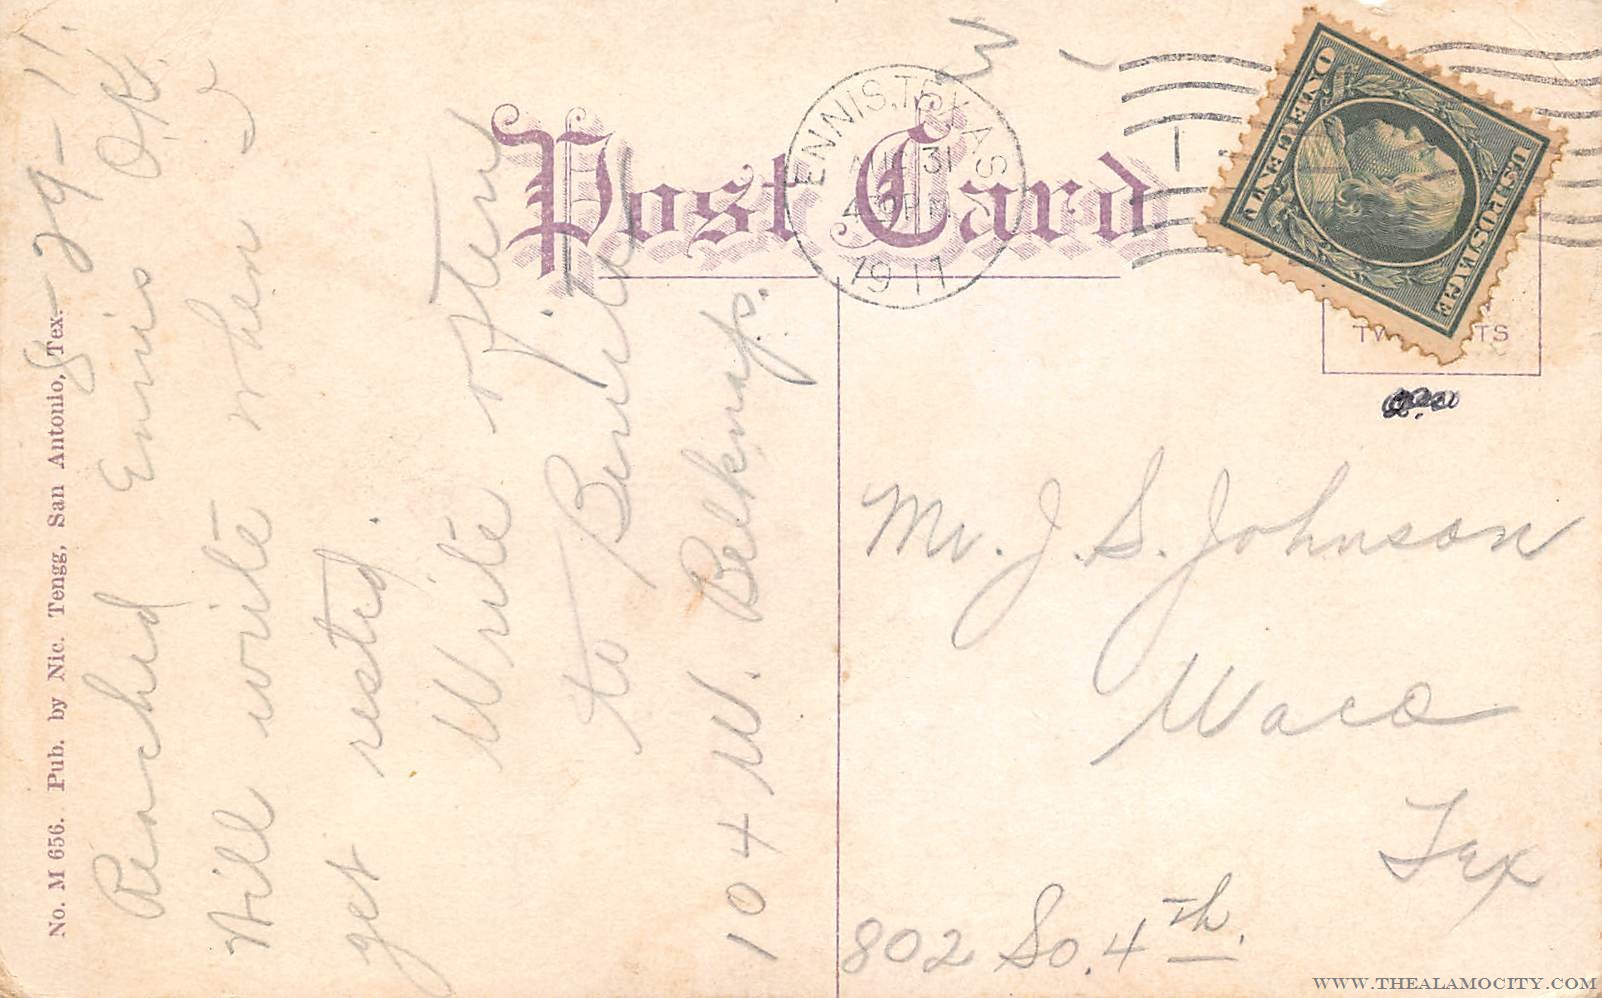 No. M 656. Pub. by Nic. Tengg, San Antonio, Tex.
8-29-11.
Reached Ennis O.K.
Will write when I
get rested.
Write often
to Burleth
104 W. Belknap.
Post Card
ENNIS, TEXAS
AUG 31
4 PM
1911
U.S. POSTAGE
ONE CENT
TS
Mr. J. S. Johnson
Waco
Tex
802 So. 4th.
WWW.THEALAMOCITY.COM